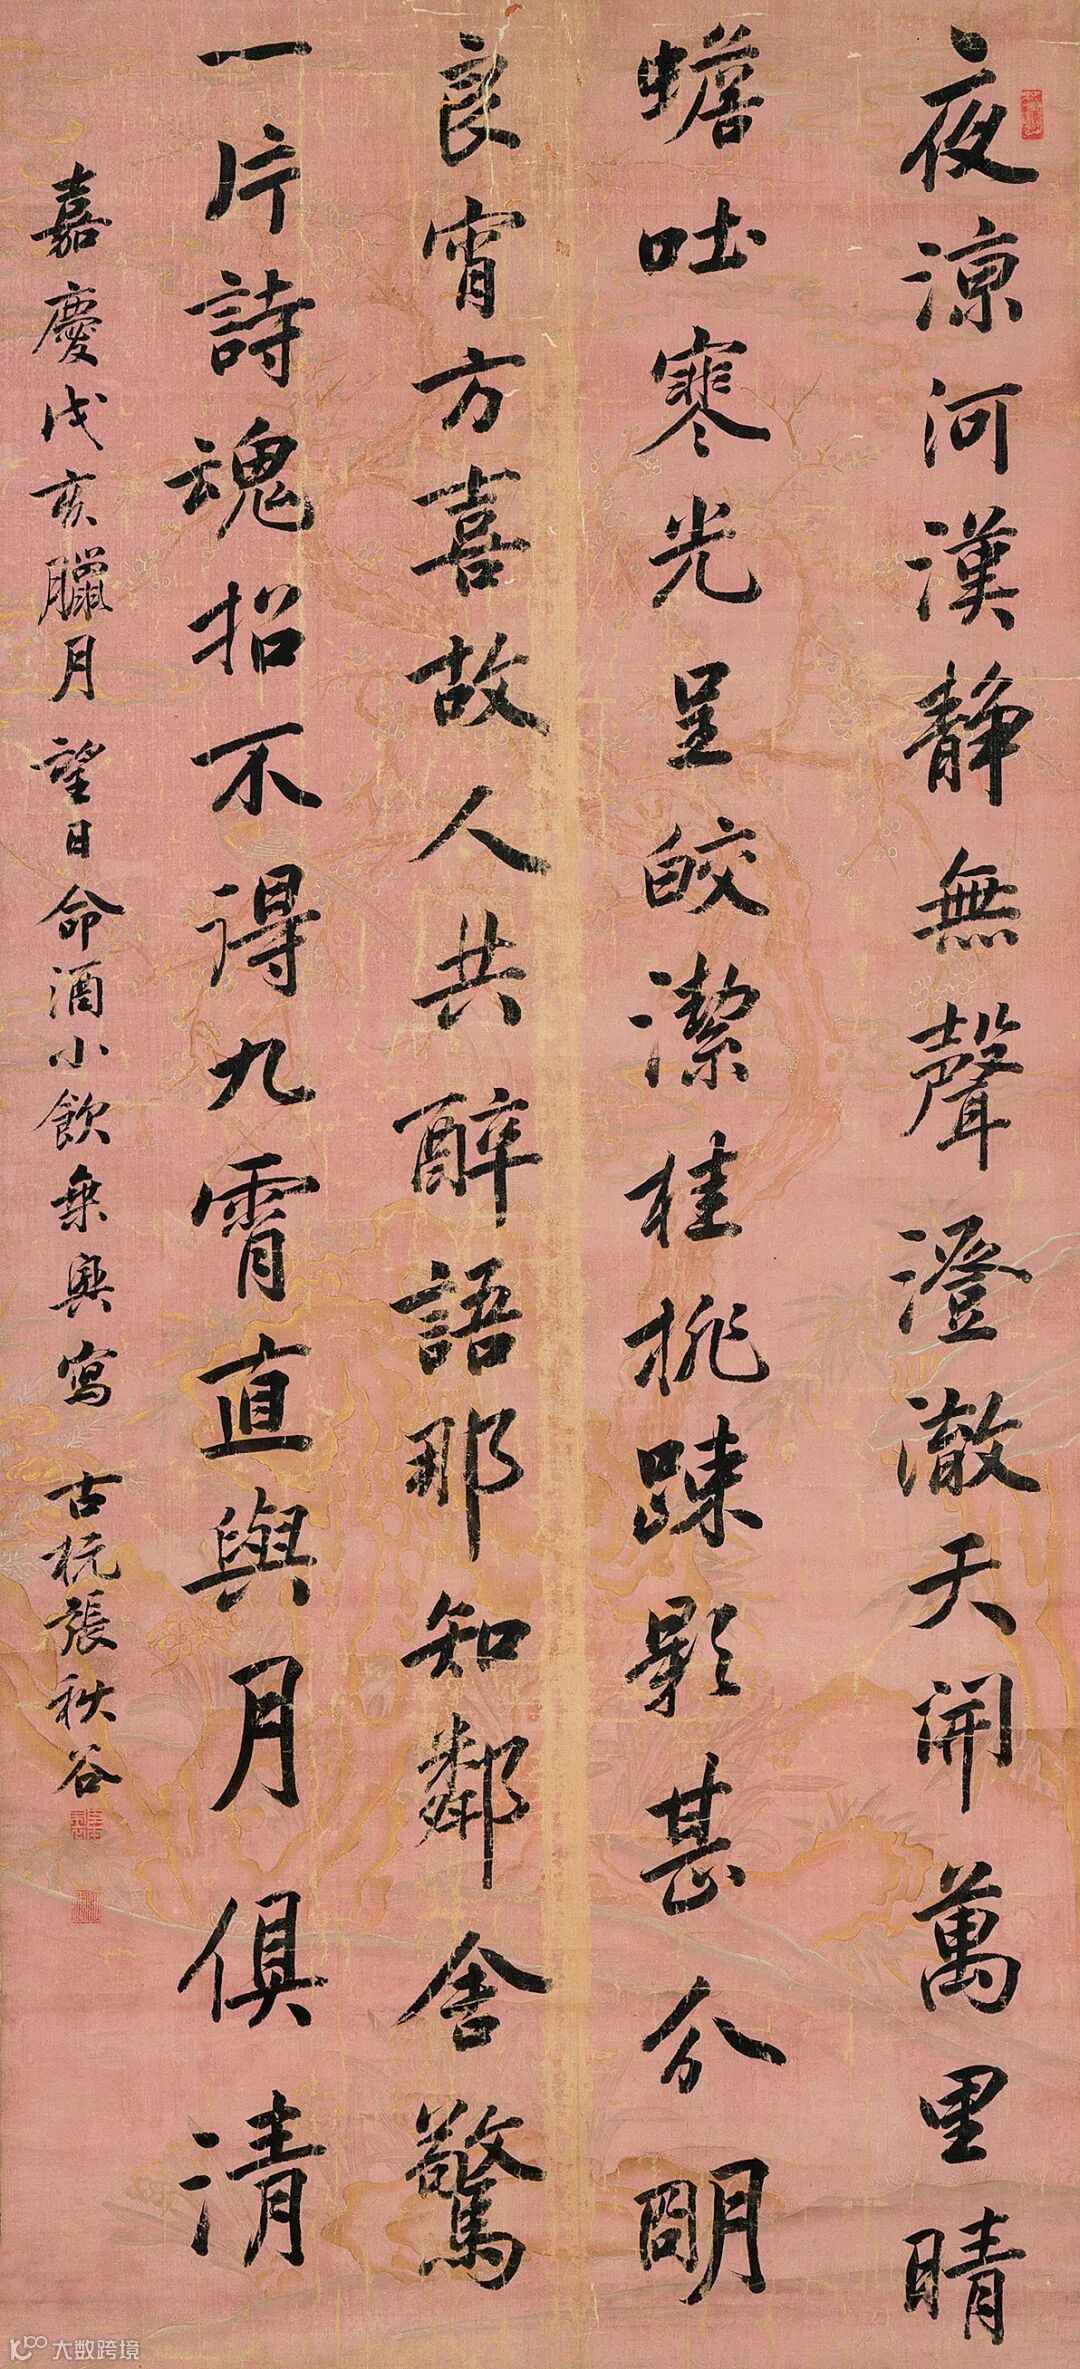 夜涼河漢静無聲澄澈天開萬里晴
蟾吐寒光呈皎潔桂挑疎影甚分明
良宵方喜故人共醉語那知鄰舍驚
一片詩魂招不得九霄直與月俱清
嘉慶戊亥臘月望日命酒小飲乗興寫 古杭張秋谷
大数跨境